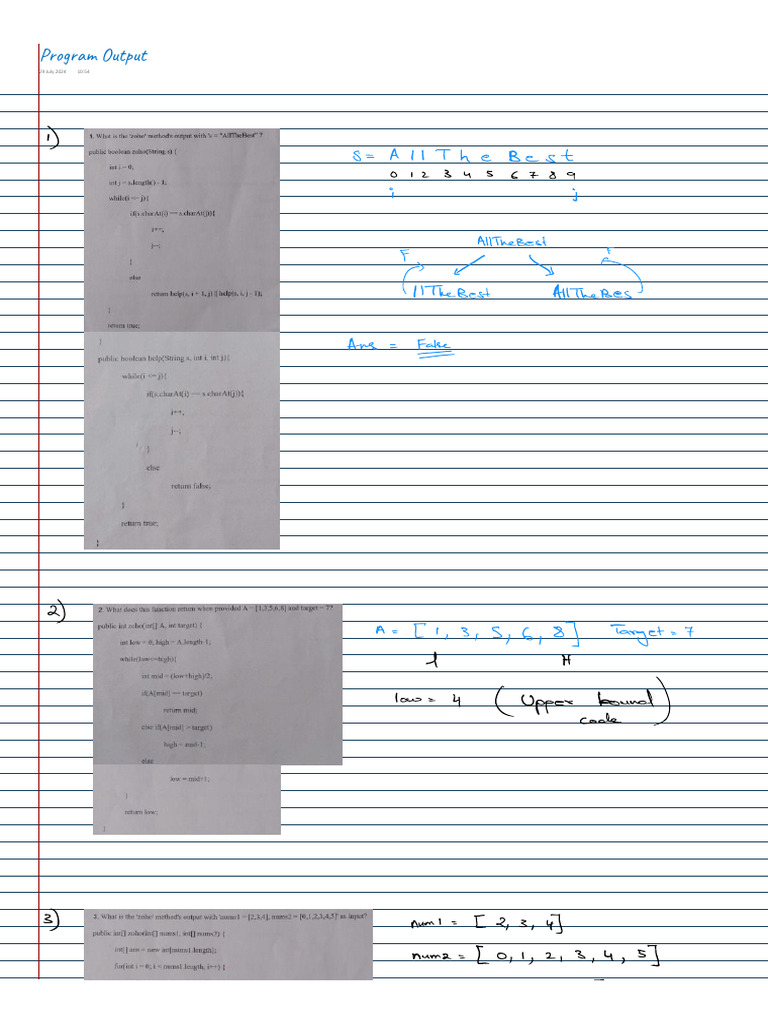 Program Output
28 July 2024 10:54
1)
1. What is the 'zoho' method's output with 's = "AllTheBest" ?
public boolean zoho(String s) {
int i = 0;
int j = s.length() - 1;
while(i <= j){
if(s.charAt(i) == s.charAt(j)){
i++;
j--;
}
else
return help(s, i + 1, j) || help(s, i, j - 1);
}
return true;
}
public boolean help(String s, int i, int j){
while(i <= j){
if(s.charAt(i) == s.charAt(j)){
i++;
j--;
}
else
return false;
}
return true;
}
S = A l l T h e B e s t
0 1 2 3 4 5 6 7 8 9
i j
AllTheBest
F
llTheBest AllTheBes
Ans = False
2)
2. What does this function return when provided A = [1,3,5,6,8] and target = 7?
public int zoho(int[] A, int target) {
int low = 0, high = A.length-1;
while(low<=high){
int mid = (low+high)/2;
if(A[mid] == target)
return mid;
else if(A[mid] > target)
high = mid-1;
else
low = mid+1;
}
return low;
}
A = [ 1, 3, 5, 6, 8 ] Target = 7
l H
low = 4 ( Upper bound
code )
3)
3. What is the 'zoho' method's output with 'nums1 = [2,3,4], nums2 = [0,1,2,3,4,5]' as input?
public int[] zoho(int[] nums1, int[] nums2) {
int[] ans = new int[nums1.length];
for(int i = 0; i < nums1.length; i++) {
num1 = [ 2, 3, 4]
num2 = [ 0, 1, 2, 3, 4, 5]